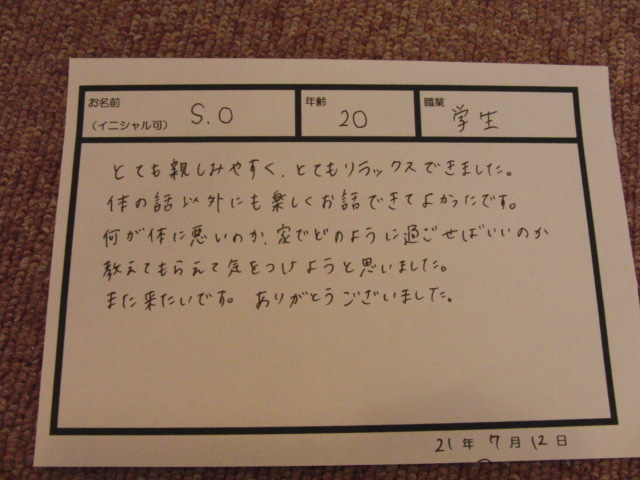 お名前 (イニシャル可) S.O 年齢 20 職業 学生
とても親しみやすく、とてもリラックスできました。
体の話以外にも楽しくお話できてよかったです。
何が体に悪いのか、家でどのように過ごせばいいのか
教えてもらえて気をつけようと思いました。
また来たいです。 ありがとうございました。
21年 7月 12日